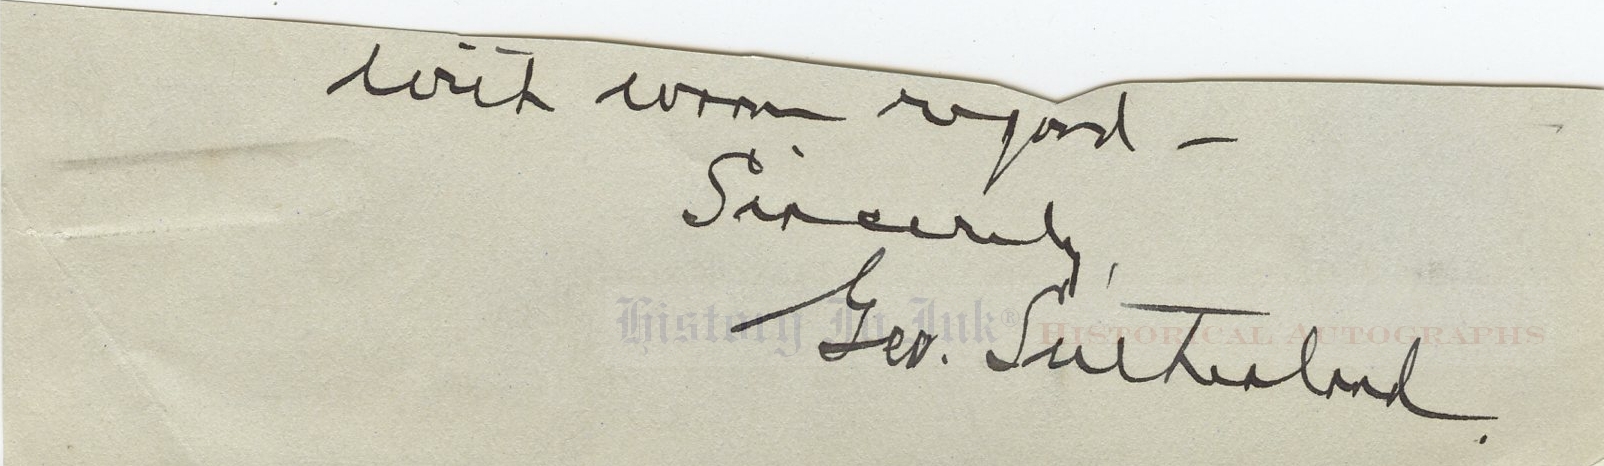 With warm regard –
Sincerely,
Geo. Sutherland.
History In Ink® HISTORICAL AUTOGRAPHS